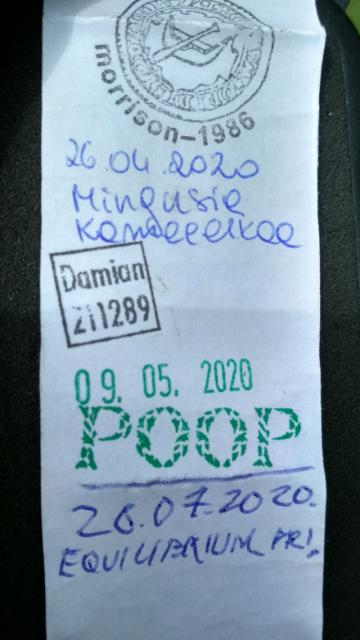 morrison-1986
26.04.2020
Mingusia
Damian
211289
09. 05. 2020
POOP
28.07.2020.
EQUILIBRIUM PR!